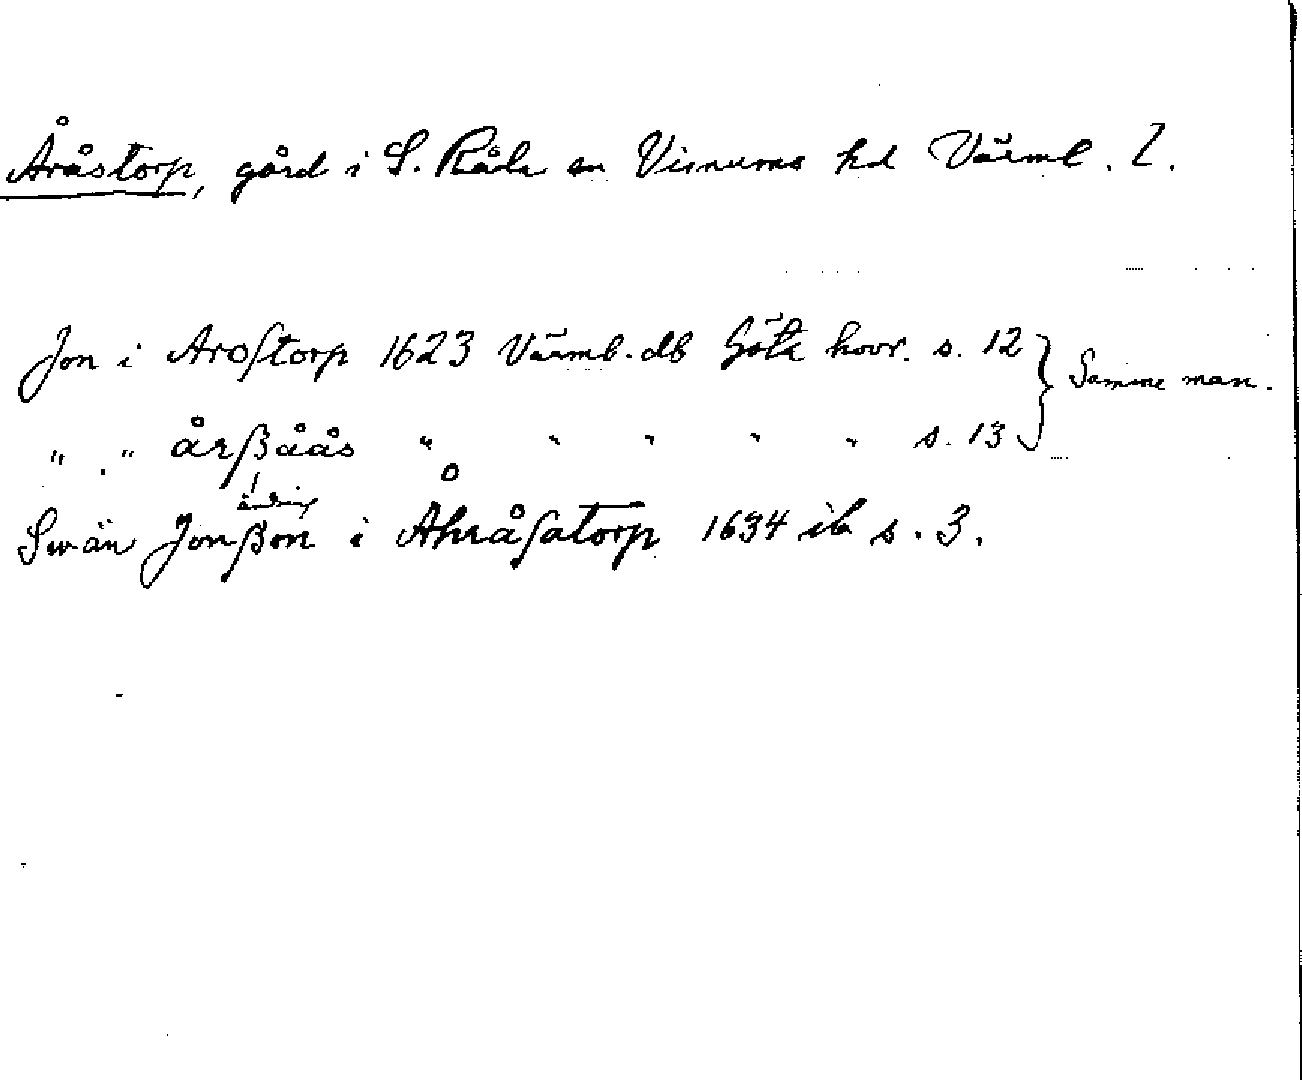 Åråstorp, gård i S. Råda sn Visnums hd Värml. l.
Jon i Aroſtorp 1623 Värml. db Göta hovr. s. 12 } Samme man.
" " årßåås " " " " " s. 13
ändring
Swän Jonßon i Åhråſatorp 1634 ib s. 3.